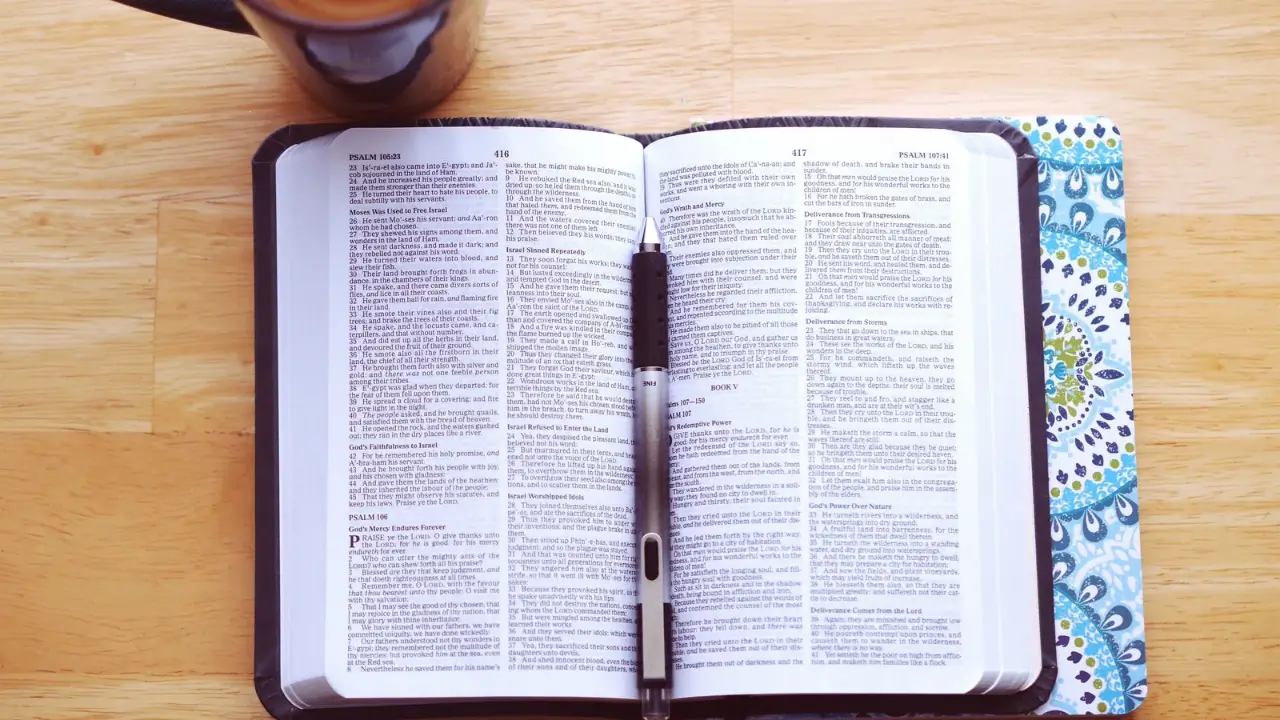 PSALM 105:23
416
23 Is'-ra-el also came into E'-gypt; and Ja'-
cob sojourned in the land of Ham.
24 And he increased his people greatly; and
made them stronger than their enemies.
25 He turned their heart to hate his people, to
deal subtilly with his servants.
Moses Was Used to Free Israel
26 He sent Mo'-ses his servant; and Aa'-ron
whom he had chosen.
27 They shewed his signs among them, and
wonders in the land of Ham.
28 He sent darkness, and made it dark; and
they rebelled not against his word.
29 He turned their waters into blood, and
slew their fish.
30 Their land brought forth frogs in abun-
dance, in the chambers of their kings.
31 He spake, and there came divers sorts of
flies, and lice in all their coasts.
32 He gave them hail for rain, and flaming fire
in their land.
33 He smote their vines also and their fig
trees; and brake the trees of their coasts.
34 He spake, and the locusts came, and ca-
terpillers, and that without number.
35 And did eat up all the herbs in their land,
and devoured the fruit of their ground.
36 He smote also all the firstborn in their
land, and the chief of all their strength.
37 He brought them forth also with silver and
gold: and there was not one feeble person
among their tribes.
38 E'-gypt was glad when they departed: for
the fear of them fell upon them.
39 He spread a cloud for a covering; and fire
to give light in the night.
40 The people asked, and he brought quails,
and satisfied them with the bread of heaven.
41 He opened the rock, and the waters gushed
out; they ran in the dry places like a river.
God's Faithfulness to Israel
42 For he remembered his holy promise, and
A'-bra-ham his servant.
43 And he brought forth his people with joy,
and his chosen with gladness:
44 And gave them the lands of the heathen:
and they inherited the labour of the people;
45 That they might observe his statutes, and
keep his laws. Praise ye the LORD.
PSALM 106
God's Mercy Endures Forever
PRAISE ye the LORD. O give thanks unto
the LORD; for he is good: for his mercy
endureth for ever.
2 Who can utter the mighty acts of the
LORD? who can shew forth all his praise?
3 Blessed are they that keep judgment, and
he that doeth righteousness at all times.
4 Remember me, O LORD, with the favour
that thou bearest unto thy people: O visit me
with thy salvation;
5 That I may see the good of thy chosen, that
I may rejoice in the gladness of thy nation, that
I may glory with thine inheritance.
6 We have sinned with our fathers, we have
committed iniquity, we have done wickedly.
7 Our fathers understood not thy wonders in
E'-gypt; they remembered not the multitude of
thy mercies; but provoked him at the sea, even
at the Red sea.
8 Nevertheless he saved them for his name's
sake, that he might make his mighty power
be known.
9 He rebuked the Red sea also, and it was
dried up: so he led them through the depths, as
through the wilderness.
10 And he saved them from the hand of him
that hated them, and redeemed them from the
hand of the enemy.
11 And the waters covered their enemies:
there was not one of them left.
12 Then believed they his words; they sang
his praise.
Israel Sinned Repeatedly
13 They soon forgat his works; they waited
not for his counsel:
14 But lusted exceedingly in the wilderness,
and tempted God in the desert.
15 And he gave them their request; but sent
leanness into their soul.
16 They envied Mo'-ses also in the camp, and
Aa'-ron the saint of the LORD.
17 The earth opened and swallowed up Da'-
than and covered the company of A-bi'-ram.
18 And a fire was kindled in their company;
the flame burned up the wicked.
19 They made a calf in Ho'-reb, and wor-
shipped the molten image.
20 Thus they changed their glory into the si-
militude of an ox that eateth grass.
21 They forgat God their saviour, which had
done great things in E'-gypt;
22 Wondrous works in the land of Ham, and
terrible things by the Red sea.
23 Therefore he said that he would destroy
them, had not Mo'-ses his chosen stood before
him in the breach, to turn away his wrath, lest
he should destroy them.
Israel Refused to Enter the Land
24 Yea, they despised the pleasant land, they
believed not his word:
25 But murmured in their tents, and hearken-
ed not unto the voice of the LORD.
26 Therefore he lifted up his hand against
them, to overthrow them in the wilderness:
27 To overthrow their seed also among the na-
tions, and to scatter them in the lands.
Israel Worshipped Idols
28 They joined themselves also unto Ba'-al-
pe'-or, and ate the sacrifices of the dead.
29 Thus they provoked him to anger with
their inventions: and the plague brake in upon
them.
30 Then stood up Phin'-e-has, and executed
judgment: and so the plague was stayed.
31 And that was counted unto him for right-
eousness unto all generations for evermore.
32 They angered him also at the waters of
strife, so that it went ill with Mo'-ses for their
sakes:
33 Because they provoked his spirit, so that
he spake unadvisedly with his lips.
34 They did not destroy the nations, concern-
ing whom the LORD commanded them:
35 But were mingled among the heathen, and
learned their works.
36 And they served their idols: which were a
snare unto them.
37 Yea, they sacrificed their sons and their
daughters unto devils,
38 And shed innocent blood, even the blood
of their sons and of their daughters, whom
417
PSALM 107:41
they sacrificed unto the idols of Ca'-na-an: and
the land was polluted with blood.
39 Thus were they defiled with their own
works, and went a whoring with their own in-
ventions.
God's Wrath and Mercy
40 Therefore was the wrath of the LORD kin-
dled against his people, insomuch that he ab-
horred his own inheritance.
And he gave them into the hand of the hea-
then; and they that hated them ruled over
Their enemies also oppressed them, and
were brought into subjection under their
Many times did he deliver them; but they
provoked him with their counsel, and were
brought low for their iniquity.
Nevertheless he regarded their affliction,
when he heard their cry:
And he remembered for them his cov-
enant, and repented according to the multitude
of his mercies.
He made them also to be pitied of all those
that carried them captives.
Save us, O LORD our God, and gather us
from among the heathen, to give thanks unto
thy holy name, and to triumph in thy praise.
Blessed be the LORD God of Is'-ra-el from
everlasting to everlasting: and let all the people
say, A'-men. Praise ye the LORD.
BOOK V
Psalms 107—150
PSALM 107
God's Redemptive Power
O GIVE thanks unto the LORD, for he is
good: for his mercy endureth for ever.
Let the redeemed of the LORD say so,
whom he hath redeemed from the hand of the
enemy;
And gathered them out of the lands, from
the east, and from the west, from the north, and
from the south.
They wandered in the wilderness in a soli-
tary way; they found no city to dwell in.
Hungry and thirsty, their soul fainted in
Then they cried unto the LORD in their
trouble, and he delivered them out of their dis-
tresses.
And he led them forth by the right way,
that they might go to a city of habitation.
Oh that men would praise the LORD for his
goodness, and for his wonderful works to the
children of men!
For he satisfieth the longing soul, and fill-
eth the hungry soul with goodness.
Such as sit in darkness and in the shadow
of death, being bound in affliction and iron;
Because they rebelled against the words of
God, and contemned the counsel of the most
Therefore he brought down their heart
with labour; they fell down, and there was
none to help.
Then they cried unto the LORD in their
trouble, and he saved them out of their dis-
tresses.
He brought them out of darkness and the
shadow of death, and brake their bands in
sunder.
15 Oh that men would praise the LORD for his
goodness, and for his wonderful works to the
children of men!
16 For he hath broken the gates of brass, and
cut the bars of iron in sunder.
Deliverance from Transgressions
17 Fools because of their transgression, and
because of their iniquities, are afflicted.
18 Their soul abhorreth all manner of meat;
and they draw near unto the gates of death.
19 Then they cry unto the LORD in their trou-
ble, and he saveth them out of their distresses.
20 He sent his word, and healed them, and de-
livered them from their destructions.
21 Oh that men would praise the LORD for his
goodness, and for his wonderful works to the
children of men!
22 And let them sacrifice the sacrifices of
thanksgiving, and declare his works with re-
joicing.
Deliverance from Storms
23 They that go down to the sea in ships, that
do business in great waters;
24 These see the works of the LORD, and his
wonders in the deep.
25 For he commandeth, and raiseth the
stormy wind, which lifteth up the waves
thereof.
26 They mount up to the heaven, they go
down again to the depths: their soul is melted
because of trouble.
27 They reel to and fro, and stagger like a
drunken man, and are at their wit's end.
28 Then they cry unto the LORD in their trou-
ble, and he bringeth them out of their dis-
tresses.
29 He maketh the storm a calm, so that the
waves thereof are still.
30 Then are they glad because they be quiet;
so he bringeth them unto their desired haven.
31 Oh that men would praise the LORD for his
goodness, and for his wonderful works to the
children of men!
32 Let them exalt him also in the congrega-
tion of the people, and praise him in the assem-
bly of the elders.
God's Power Over Nature
33 He turneth rivers into a wilderness, and
the watersprings into dry ground;
34 A fruitful land into barrenness, for the
wickedness of them that dwell therein.
35 He turneth the wilderness into a standing
water, and dry ground into watersprings.
36 And there he maketh the hungry to dwell,
that they may prepare a city for habitation;
37 And sow the fields, and plant vineyards,
which may yield fruits of increase.
38 He blesseth them also, so that they are
multiplied greatly; and suffereth not their cat-
tle to decrease.
Deliverance Comes from the Lord
39 Again, they are minished and brought low
through oppression, affliction, and sorrow.
40 He poureth contempt upon princes, and
causeth them to wander in the wilderness,
where there is no way.
41 Yet setteth he the poor on high from afflic-
tion, and maketh him families like a flock.
FINE